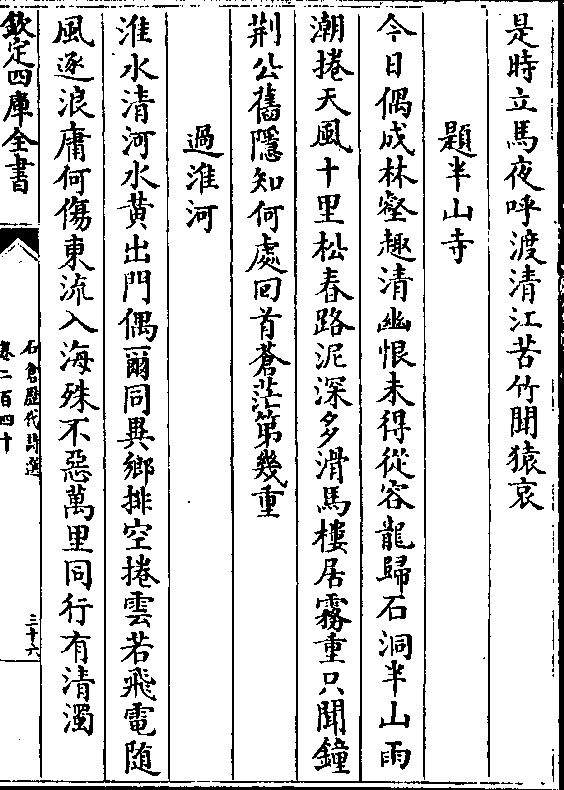 是時立馬夜呼渡清江苦竹聞猿哀
題半山寺
今日偶成林壑趣清幽恨未得從容龍歸石洞半山雨
潮捲天風十里松春路泥深多滑馬樓居霧重只聞鐘
荆公舊隱知何處回首蒼茫第幾重
過淮河
淮水清河水黄出門偶爾同異鄉排空捲雲若飛電随
風逐浪庸何傷東流入海殊不惡萬里同行有清濁
欽定四庫全書
石倉歷代詩選
卷二百四十
三十六